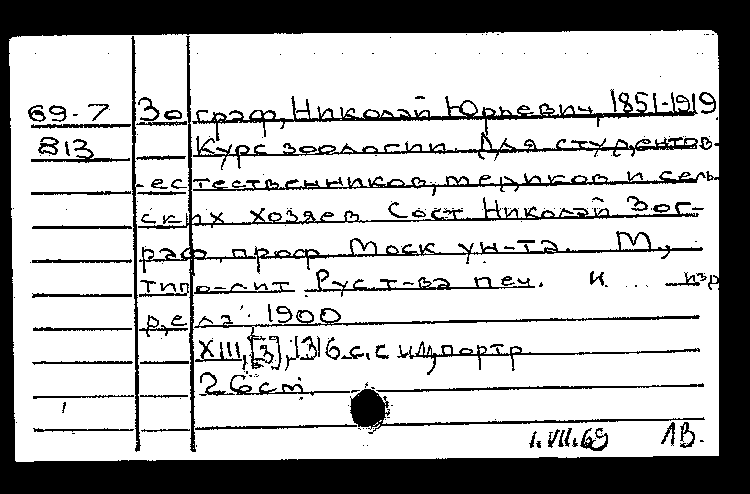 69-7 Зограф, Николай Юрьевич, 1851-1919
813 Курс зоологии. Для студентов-
-естественников, медиков и сель-
ских хозяев Сост Николай Зог-
раф, проф Моск ун-та. М.,
типо-лит Рус т-ва печ. и ... изд
дела 1900
XIII, [3], 1316 с. с илл, портр
26 см.
1.VII.69 ЛВ.